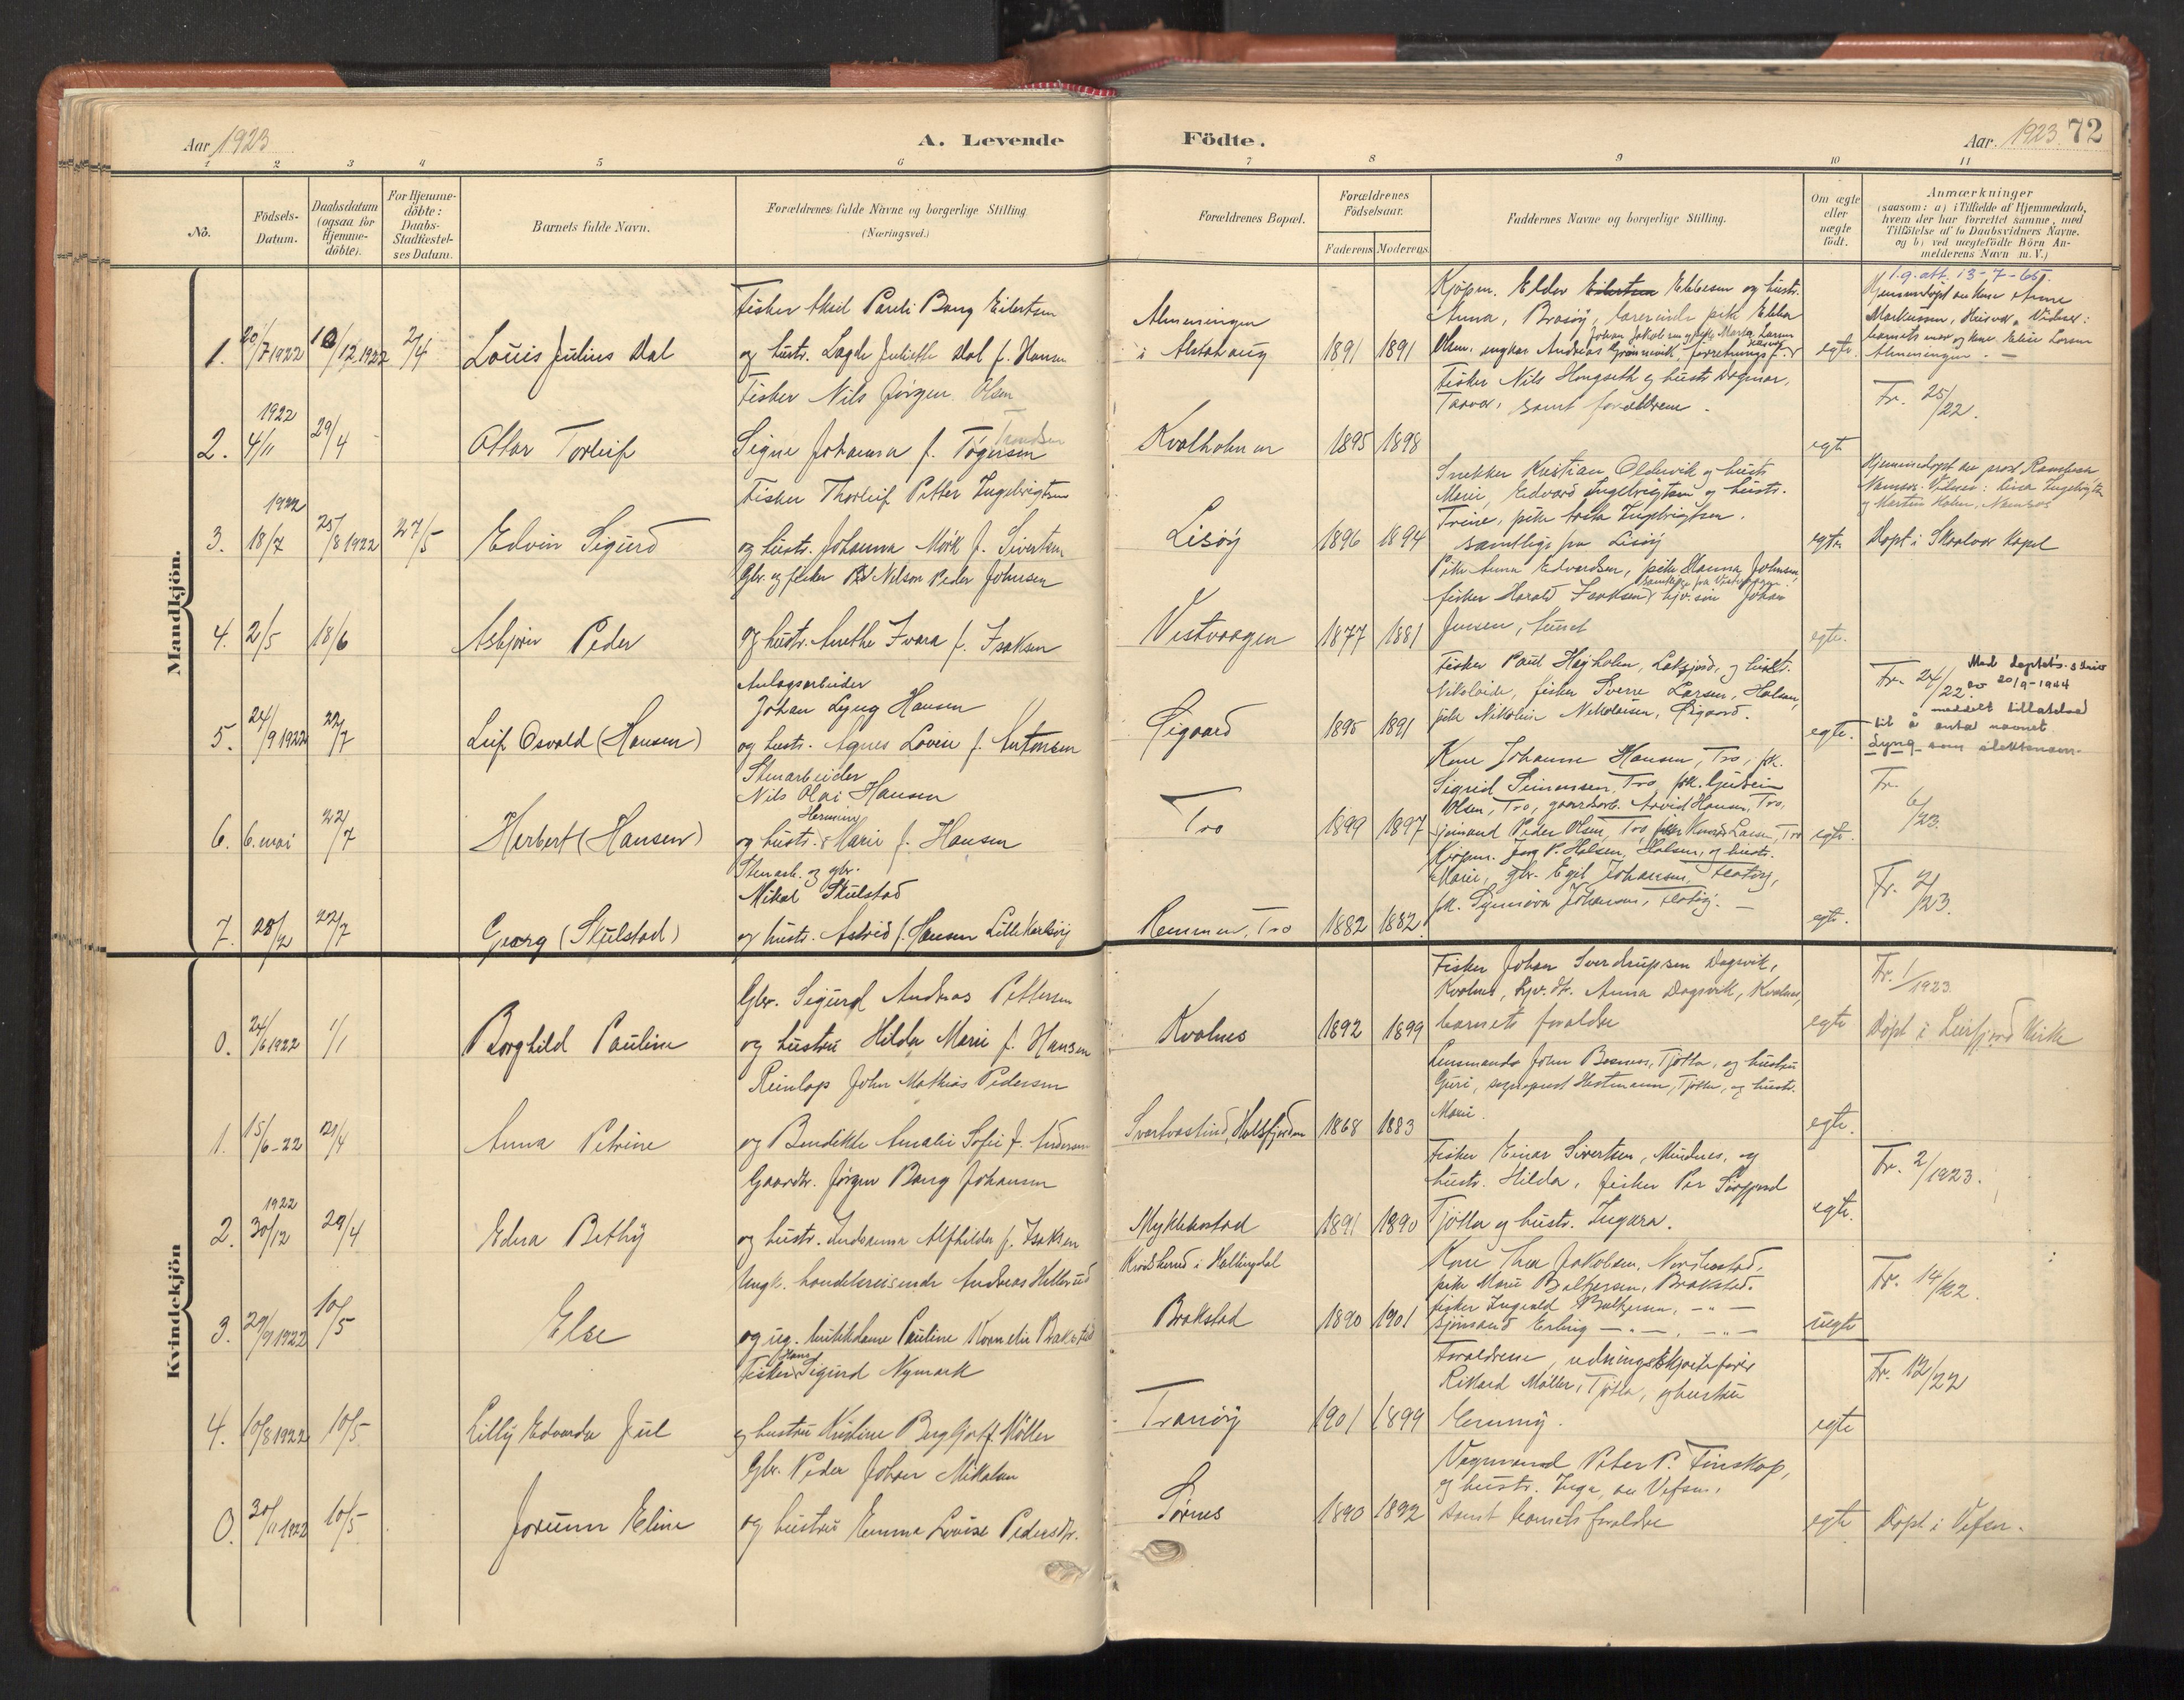 Aar 1923
A. Levende
Födte.
Aar. 1923. 72
1 2 3 4 5 6 7 8 9 10 11
No.
Födsels-
Datum.
Daabsdatum
(ogsaa for
Hjemme-
döbte).
For Hjemme-
döbte:
Daabs-
Stadfæstel-
ses Datum.
Barnets fulde Navn.
Forældrenes fulde Navne og borgerlige Stilling
(Næringsvei.)
Forældrenes Bopæl.
Forældrenes
Födselsaar.
Faderens
Moderens
Faddernes Navne og borgerlige Stilling.
Om ægte
eller
uægte
födt.
Anmærkninger
(saasom: a) i Tilfælde af Hjemmedaab,
hvem der har forrettet samme, med
Tilföielse af to Daabsvidners Navne.
og b) ved uægtefödte Börn An-
melderens Navn m. V.)
Mandkjön.
1. 20/7 1922 10/12 1922 2/4
Louis Julius Dal
Fisker Aksel Pareli Bang Eilertsen
og hustr. Lagle Juliette Dal f. Hansen
Almenningen
i Alstahaug
1891 1891
Kjøpm. Eldor Ebbesen og hustr.
Anna, Brasøy, lærerinde pike Ebba
Olsen, ungkar Andreas Grønnevik, forretningsf.
egte
1.g. att. 13-7-65.
Hjemmedøpt av kone Anne
Markussen, Husvær. Vidner:
barnets mor og kone Elise Larsen
Almenningen. —
2. 1922 4/11 29/4
Ottar Torleif
Fisker Nils Jørgen Olsen
Signe Johanna f. Tøgersen
Kvalholmen
1895 1898
Fisker Nils Hongseth og hustr. Dagmar,
Tarvar, samt forældrene.
egte
Fr. 25/22.
3. 1922 18/7 25/8 1922 27/5
Edvin Sigurd
Fisker Thorleif Petter Ingebrigtsen
og hustr. Johanna Mörk f. Sivertsen
Lisøy
1896 1894
Snekker Kristian Oldervik og hustr.
Marie, Edvard Ingebrigtsen og hustr.
Trine, pike Ingebrigtsen.
samtlige fra Lisøy
egte
Hjemmedøpt av prost
Namsos. Vidner: Lina Ingebrigtsen
og Martin Holm, Namsos
Døpt i Skaalvær Kapel
4. 2/5 18/6
Asbjørn Peder
Gbr. og fisker Nilson Peder Johnsen
og hustr. Anethe Ivara f. Isaksen
Vistvaagen
1877 1881
Pike Anna Edvardsen, pike Hanna Johnsen,
fisker Harald Isaksen, gbr. søn Johan
samtlige fra Vistvaagen.
Jensen,
egte.
5. 24/9 1922 22/7
Leif Osvald (Hansen)
Anlægsarbeider
Johan Lyng Hansen
og hustr. Agnes Lovise f. Antonsen
Øigaard
1895 1891
Fisker Paul Høyholm, Leksjord, og hustr.
Nikolaide, fisker Sverre Larsen, Holsen,
pike Nikoline Nikolaisen, Øigaard.
egte.
Fr. 24/22.
Med deptets. skriv
av 20/9-1944
meddelt tillatelse
til å anta navnet
Lyng som slektsnavn.
6. 6. mai 22/7
Herbert (Hansen)
Stenarbeider
Nils Olai Hansen
Hermine
og hustr. Marie f. Hansen
Tro
1899 1897
Kone Johanne Hansen, Tro, pk.
Sigrid Simonsen, Tro, pk. Gudrun
Olsen, Tro, gaardarb. Arvid Hansen, Tro,
sjømand Peder Olsen, Tro, fisker Larsen, Tro
egte.
Fr. 6/23.
7. 28/2 22/7
Georg (Skulstad)
Stenarb. og gbr.
Mikal Skulstad
og hustr. Astrid f. Hansen
Remmen, Tro
1882 1882.
Kjøpm. P. Holsen, Holsen, og hustr.
Marie, gbr. Egil Johansen, Flatøy,
pk. Synnøva Johansen, Flatøy. —
egte.
Fr. 7/23.
Kvindekjön
0. 24/6 1922 1/1
Borghild Pauline
Gbr. Sigurd Andreas Pettersen
og hustru Hilda Marie f. Hansen
Kvalnes
1892 1899
Fisker Johan Sverdrupsen Dagsvik,
Kvalnes, gbr. dt. Anna Dagsvik, Kvalnes,
barnets forældre
egte
Fr. 1/1923
Døpt i Leirfjord Kirke
1. 15/6-22 2/4
Anna Petrine
Reinlap John Mathias Pedersen
og Bendikte Amalie Sofie f. Andersen
1868 1883
Lensmand John Bosnes, Tjøtta, og hustru
Guri, sogneprest Hestmann, Tjøtta, og hustr.
Marie.
egte.
2. 1922 30/12 29/4
Edna Bethy
Gaardbr. Jørgen Bang Johansen
og hustr. Alfhilda f. Isaksen
Myklebostad
1891 1890
Fisker Einar Sivertsen, Mindnes, og
hustr. Hilda, fisker Per Sørfjord
Tjøtta og hustr. Ingara.
egte.
Fr. 2/1923.
3. 29/9 1922 10/5
Else
Ungk. handelsreisende Andreas Hellerud
og ug. butikdame Pauline Kornelie Brakstad
Krødsherad i Hallingdal
Brakstad
1890 1901
Kone Thea Jakobsen, Nordbostad,
pike Marie Baltzersen, Brakstad.
fisker Ingvald Baltzersen, — " —
sjømand Erling — " — , — " —
uegte
Fr. 14/22.
4. 10/8 1922 10/5
Lilly Edvarda Jul
Fisker Hans Sigurd Nymark
og hustru Kristine Bergljot f. Møller
Tranøy
1901 1899
Forældrene, redningsskøitefører
Rikard Møller, Tjøtta, og hustru
Emmy.
egte
Fr. 12/22
0. 30/11 1922 10/5
Jorunn Eline
Gbr. Peder Johan Mikalsen
og hustru Emma Lovise Pedersdtr.
Sørnes
1890 1892
Vognmand Peter P. Finskop,
og hustr. Inga, av Vefsn,
samt barnets forældre
egte
Døpt i Vefsn.